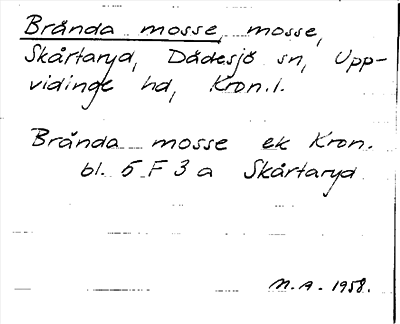 Brånda mosse, mosse,
Skårtaryd, Dädesjö sn, Upp-
vidinge hd, Kron.l.
Brånda mosse ek Kron.
bl. 5 F 3 a Skårtaryd
M.A. 1958.